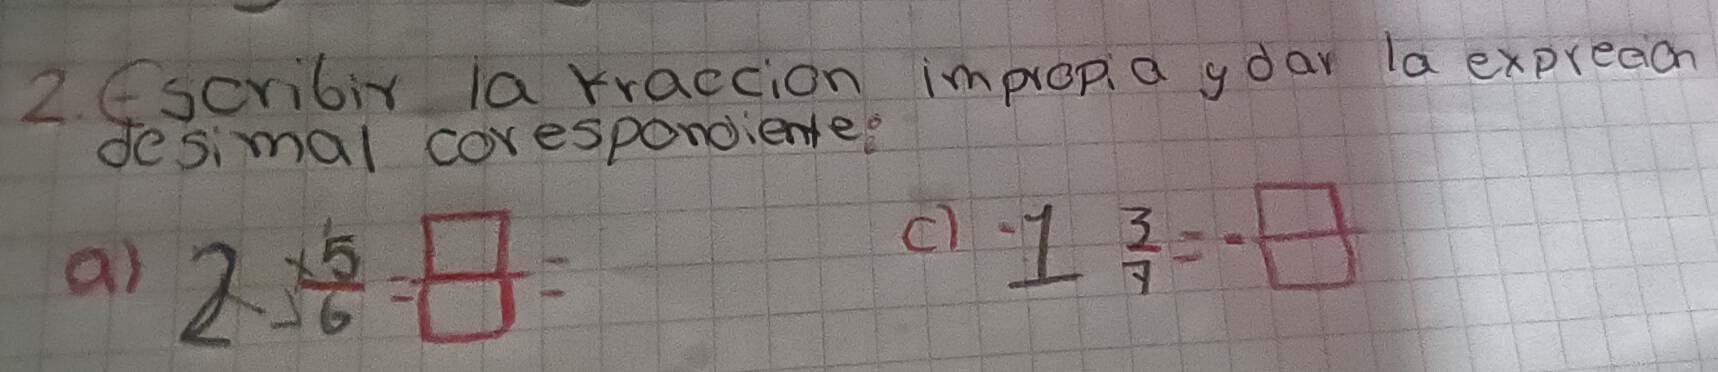 2. Escribir la fraccion impropia y dar la expreción
desimal corespondiente:
a) 2 5/6 = =
c) -1 3/7 = -